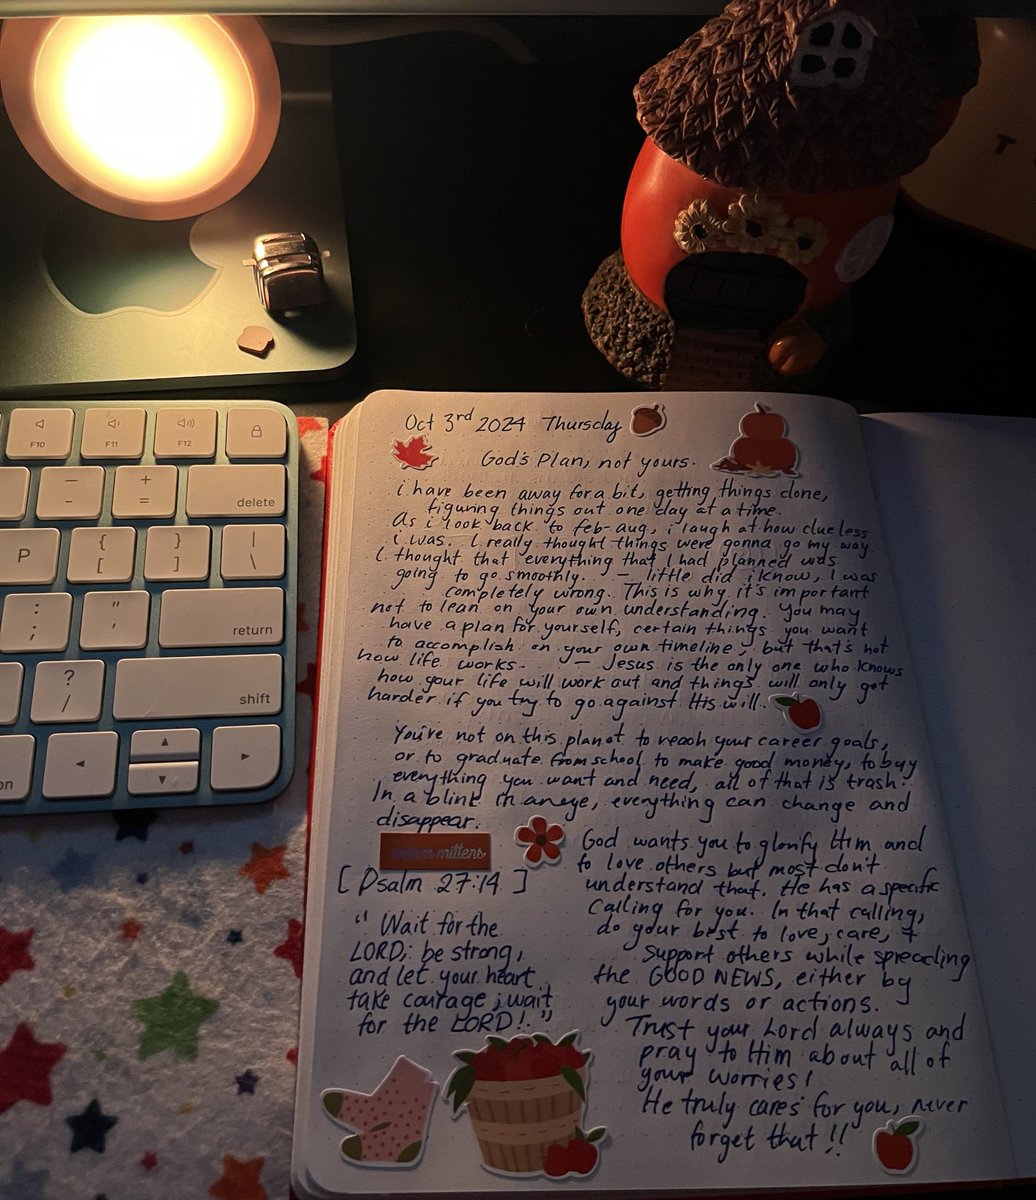 F10
F11
F12
– _
+ =
delete
P
{ [
} ]
| \
: ;
" '
return
? /
shift
on
Oct 3rd 2024 Thursday
God's Plan, not yours.
i have been away for a bit, getting things done,
figuring things out one day at a time.
As i look back to feb-aug, i laugh at how clueless
i was. I really thought things were gonna go my way.
I thought that everything that I had planned was
going to go smoothly. — little did i know, I was
completely wrong. This is why it's important
not to lean on your own understanding. You may
have a plan for yourself, certain things you want
to accomplish on your own timeline, but that's not
how life works. — Jesus is the only one who knows
how your life will work out and things will only get
harder if you try to go against His will.
You're not on this planet to reach your career goals,
or to graduate from school to make good money, to buy
everything you want and need, all of that is trash.
In a blink in an eye, everything can change and
disappear.
warm mittens
[ Psalm 27:14 ]
" Wait for the
LORD; be strong,
and let your heart
take courage; wait
for the LORD!. "
God wants you to glorify Him and
to love others but most don't
understand that. He has a specific
calling for you. In that calling,
do your best to love, care, +
support others while spreading
the GOOD NEWS, either by
your words or actions.
Trust your Lord always and
pray to Him about all of
your worries!
He truly cares for you, never
forget that !!